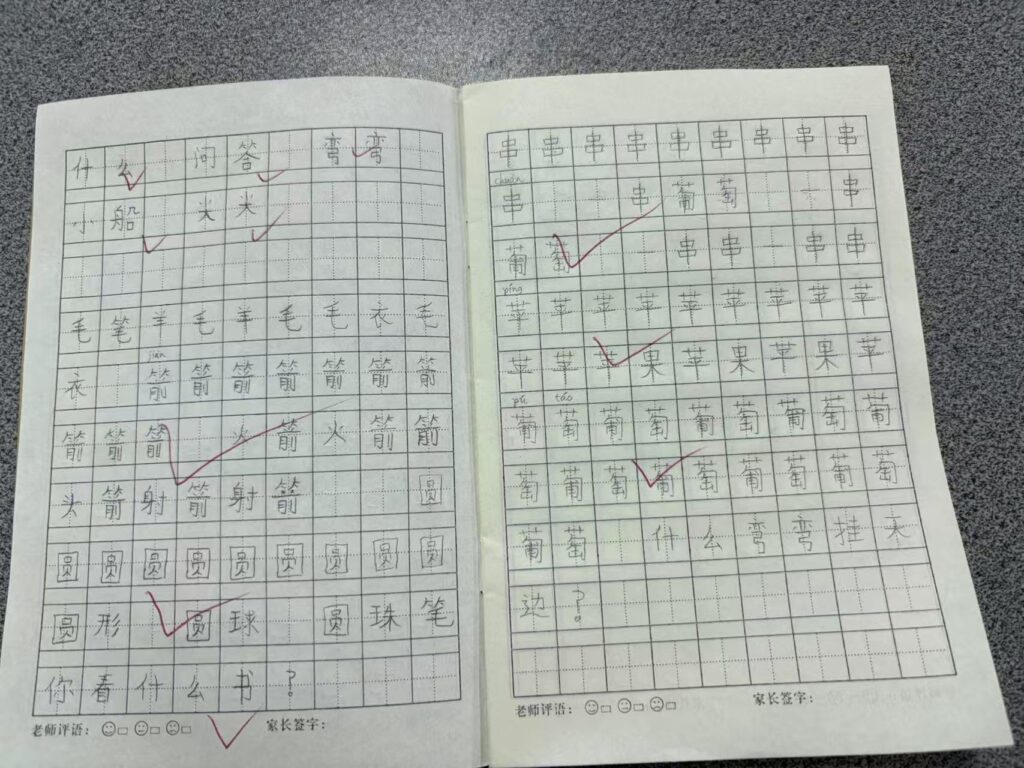 什么 问答 弯弯
小船 尖尖
毛笔羊毛羊毛毛衣毛
jiàn
衣 箭箭箭箭箭箭箭
箭箭箭 火箭火箭箭
头箭射箭射箭 圆
圆圆圆圆圆圆圆圆圆
圆形 圆球 圆珠笔
你看什么书?
老师评语: 家长签字:
串串串串串串串串串
chuàn
串一一串葡萄一一串
葡萄一一串串一串串
píng
苹苹苹苹苹苹苹苹苹
苹苹苹果苹果苹果苹
pú táo
葡萄葡萄葡萄葡萄葡
萄葡萄葡萄葡萄葡萄
葡萄 什么弯弯挂天
边?
老师评语: 家长签字: